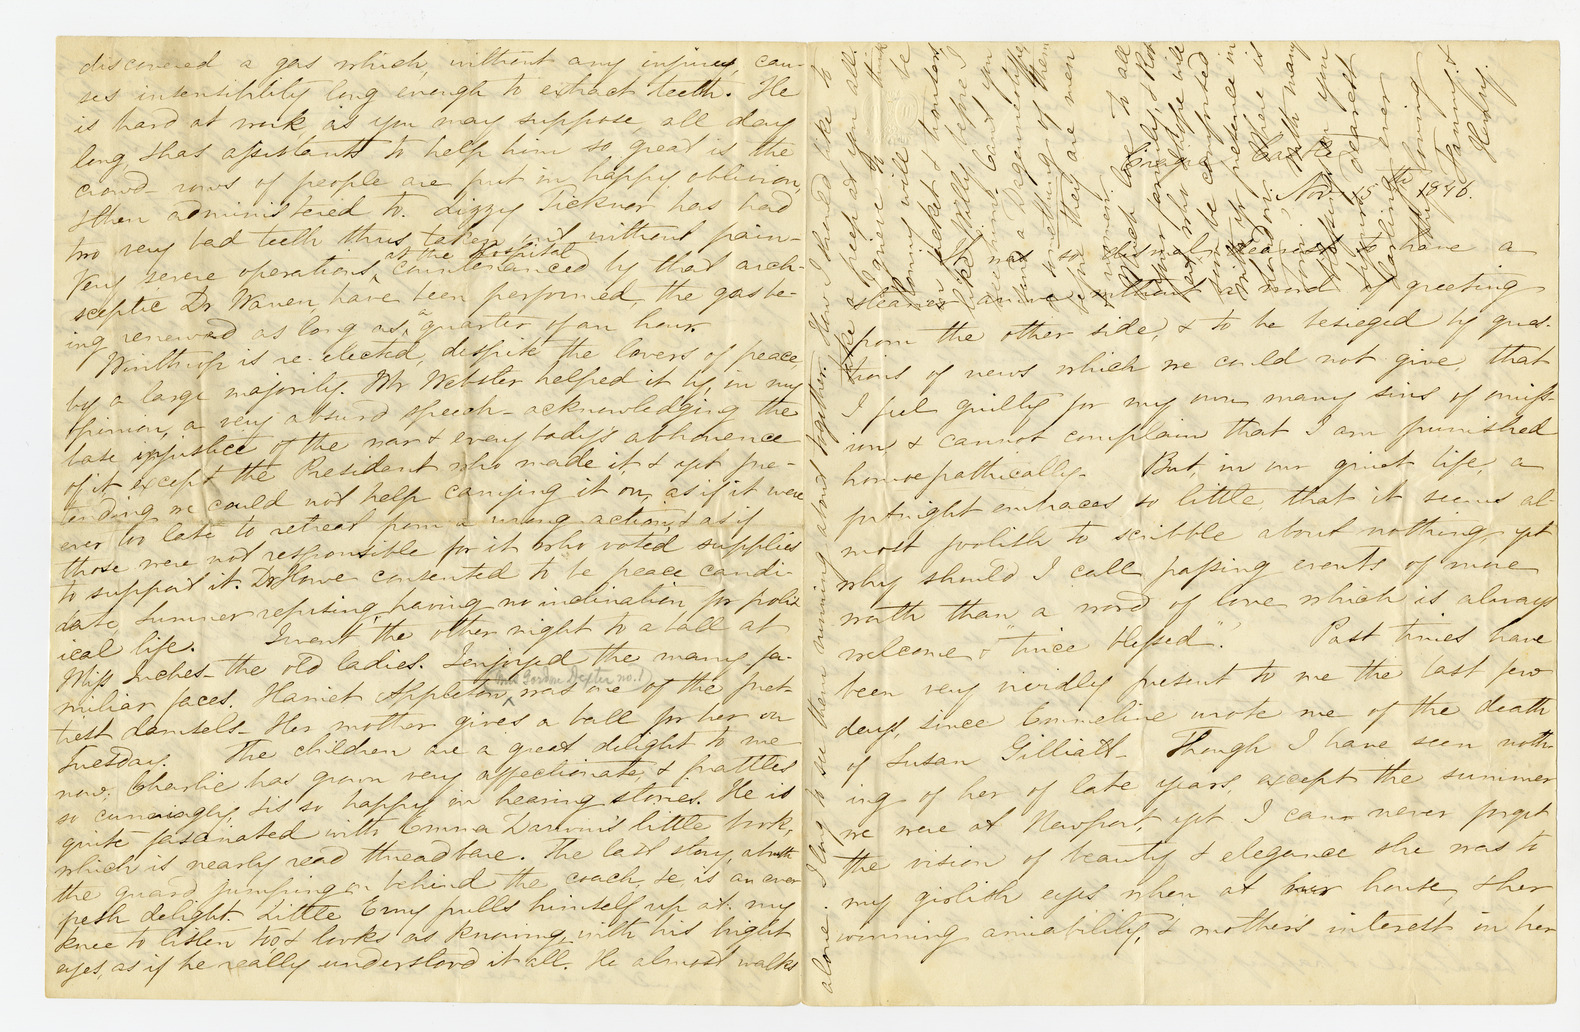 discovered a gas which, without any injury, cau-
ses insensibility long enough to extract teeth. He
is hard at work as you may suppose, all day
long, & has assistants to help him so great is the
crowd - rows of people are put in happy oblivion,
& then administered to. Lizzy Ticknor has had
two very bad teeth thus taken out without pain -
Very severe operations, at the Hospital countenanced by that arch-
sceptic Dr Warren, have been performed, the gas be-
ing renewed as long as a quarter of an hour.
Winthrop is re-elected, despite the lovers of peace,
by a large majority. Mr Webster helped it by, in my
opinion, a very absurd speech - acknowledging the
base injustice of the war & everybody's abhorrence
of it except the President who made it & yet pre-
tending we could not help carrying it on, as if it were
ever too late to retreat from a wrong action, & as if
those were not responsible for it who voted supplies
to support it. Dr Howe consented to be peace candi-
date, Sumner refusing, having no inclination for polit-
ical life. I went the other night to a ball at
Miss Inches - the old ladies. I enjoyed the many fa-
miliar faces. Harriet Appleton, (Mrs Gordon Dexter no. 1) was one of the pret-
tiest damsels - Her mother gives a ball for her on
Tuesday. The children are a great delight to me
now; Charlie has grown very affectionate, & prattles
so cunningly, & is so happy in hearing stories. He is
quite fascinated with Emma Darwin's little book,
which is nearly read threadbare. The last story, about
the guard jumping on behind the coach, &c, is an ever
fresh delight. Little Erny pulls himself up at my
knee to listen too & looks as knowing, with his bright
eyes, as if he really understood it all. He almost walks
alone. I long to see them running about together. How I should like to
take a peep at you all.
Much love to all
your family, & Rob
and who I hope will
be comforted
Ever
loving
Fanny &
Henry.
Craigie Castle
Nov 15th 1846.
It was so dismal, dearest to have a
steamer arrive without a word of greeting
from the other side, & to be besieged by ques-
tions of news which we could not give, that
I feel guilty for my own many sins of omiss-
ion, & cannot complain that I am punished
homoeopathically. But, in our quiet life, a
fortnight embraces so little, that it seems al-
most foolish to scribble about nothing, yet
why should I call passing events of more
worth than a word of love which is always
welcome & "twice blessed". Past times have
been very vividly present to me the last few
days, since Emmeline wrote me of the death
of Susan Gilliatt - Though I have seen noth-
ing of her of late years, except the summer
we were at Newport, yet I can never forget
the vision of beauty & elegance she was to
my girlish eyes when at her house, & her
winning amiability, & mother's interest in her